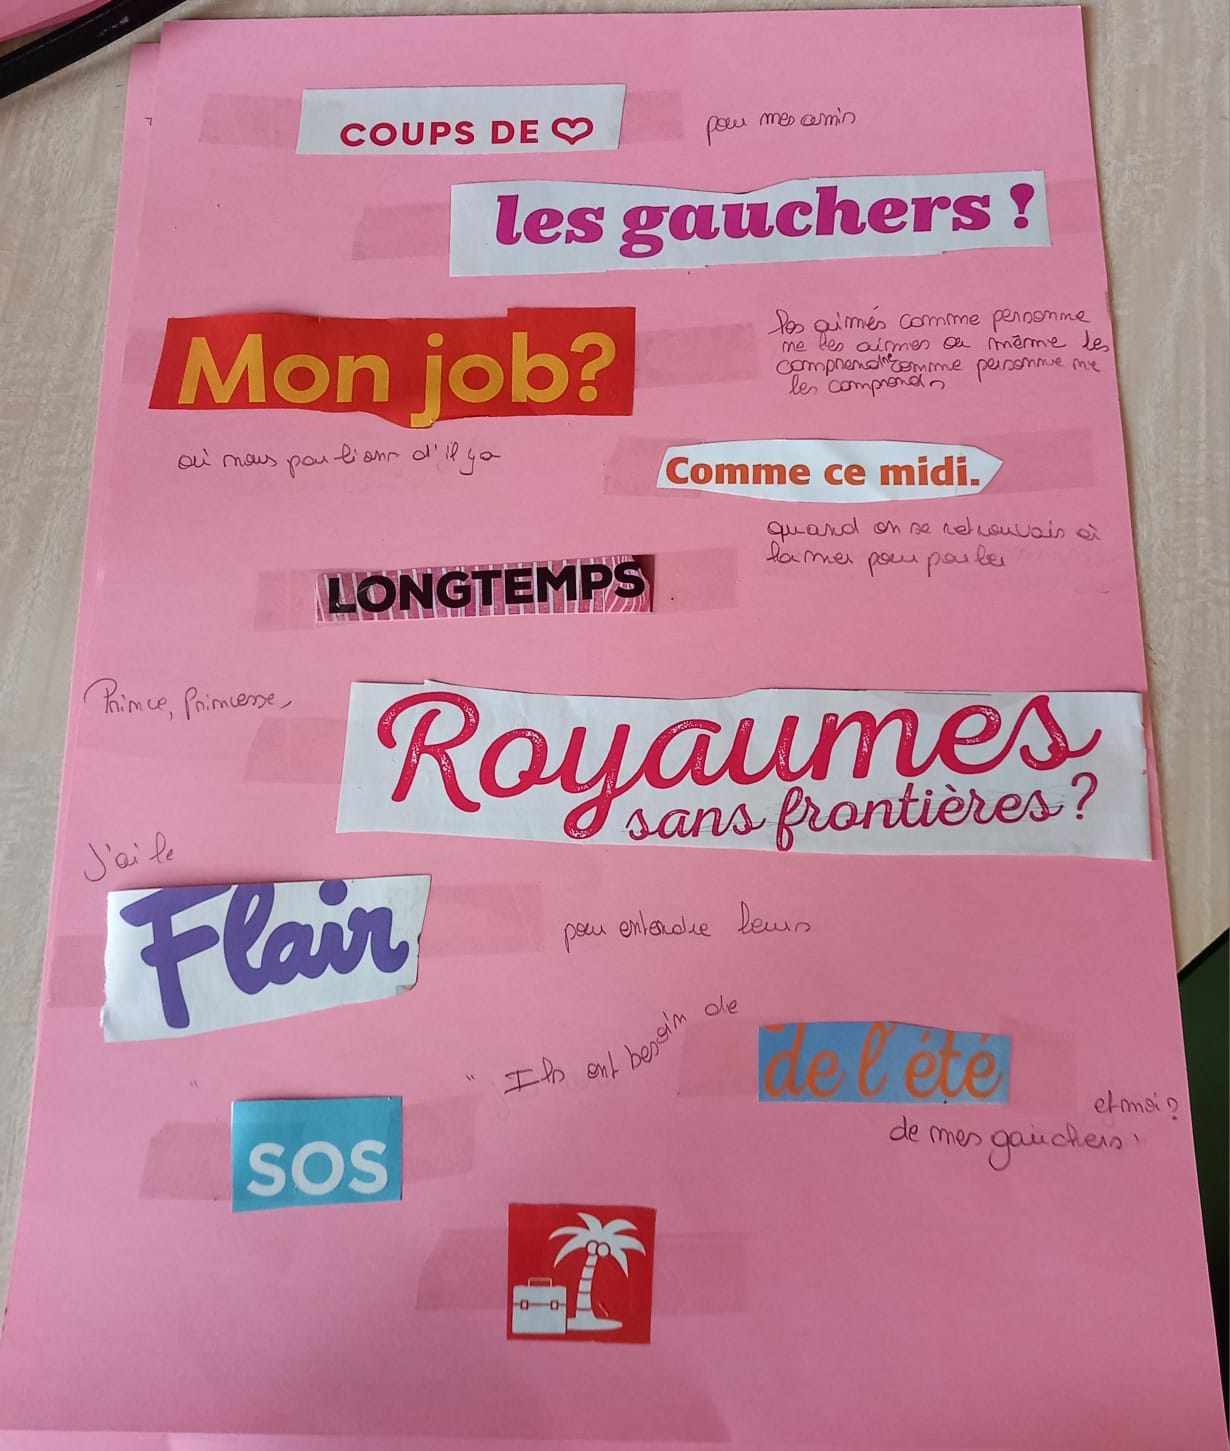 COUPS DE
pour mes amis
les gauchers !
Mon job?
les aimés comme personne
ne les aimes ou même les
comprendre comme personne ne
les comprends
où nous parlions d'il y a
Comme ce midi.
quand on se retrouvais à
la mer pour parler
LONGTEMPS
Prince, Princesse,
Royaumes
sans frontières ?
J'ai le
Flair
pour entendre leurs
" SOS "
Ils ont besoin de
de l'été
et moi ?
de mes gauchers.